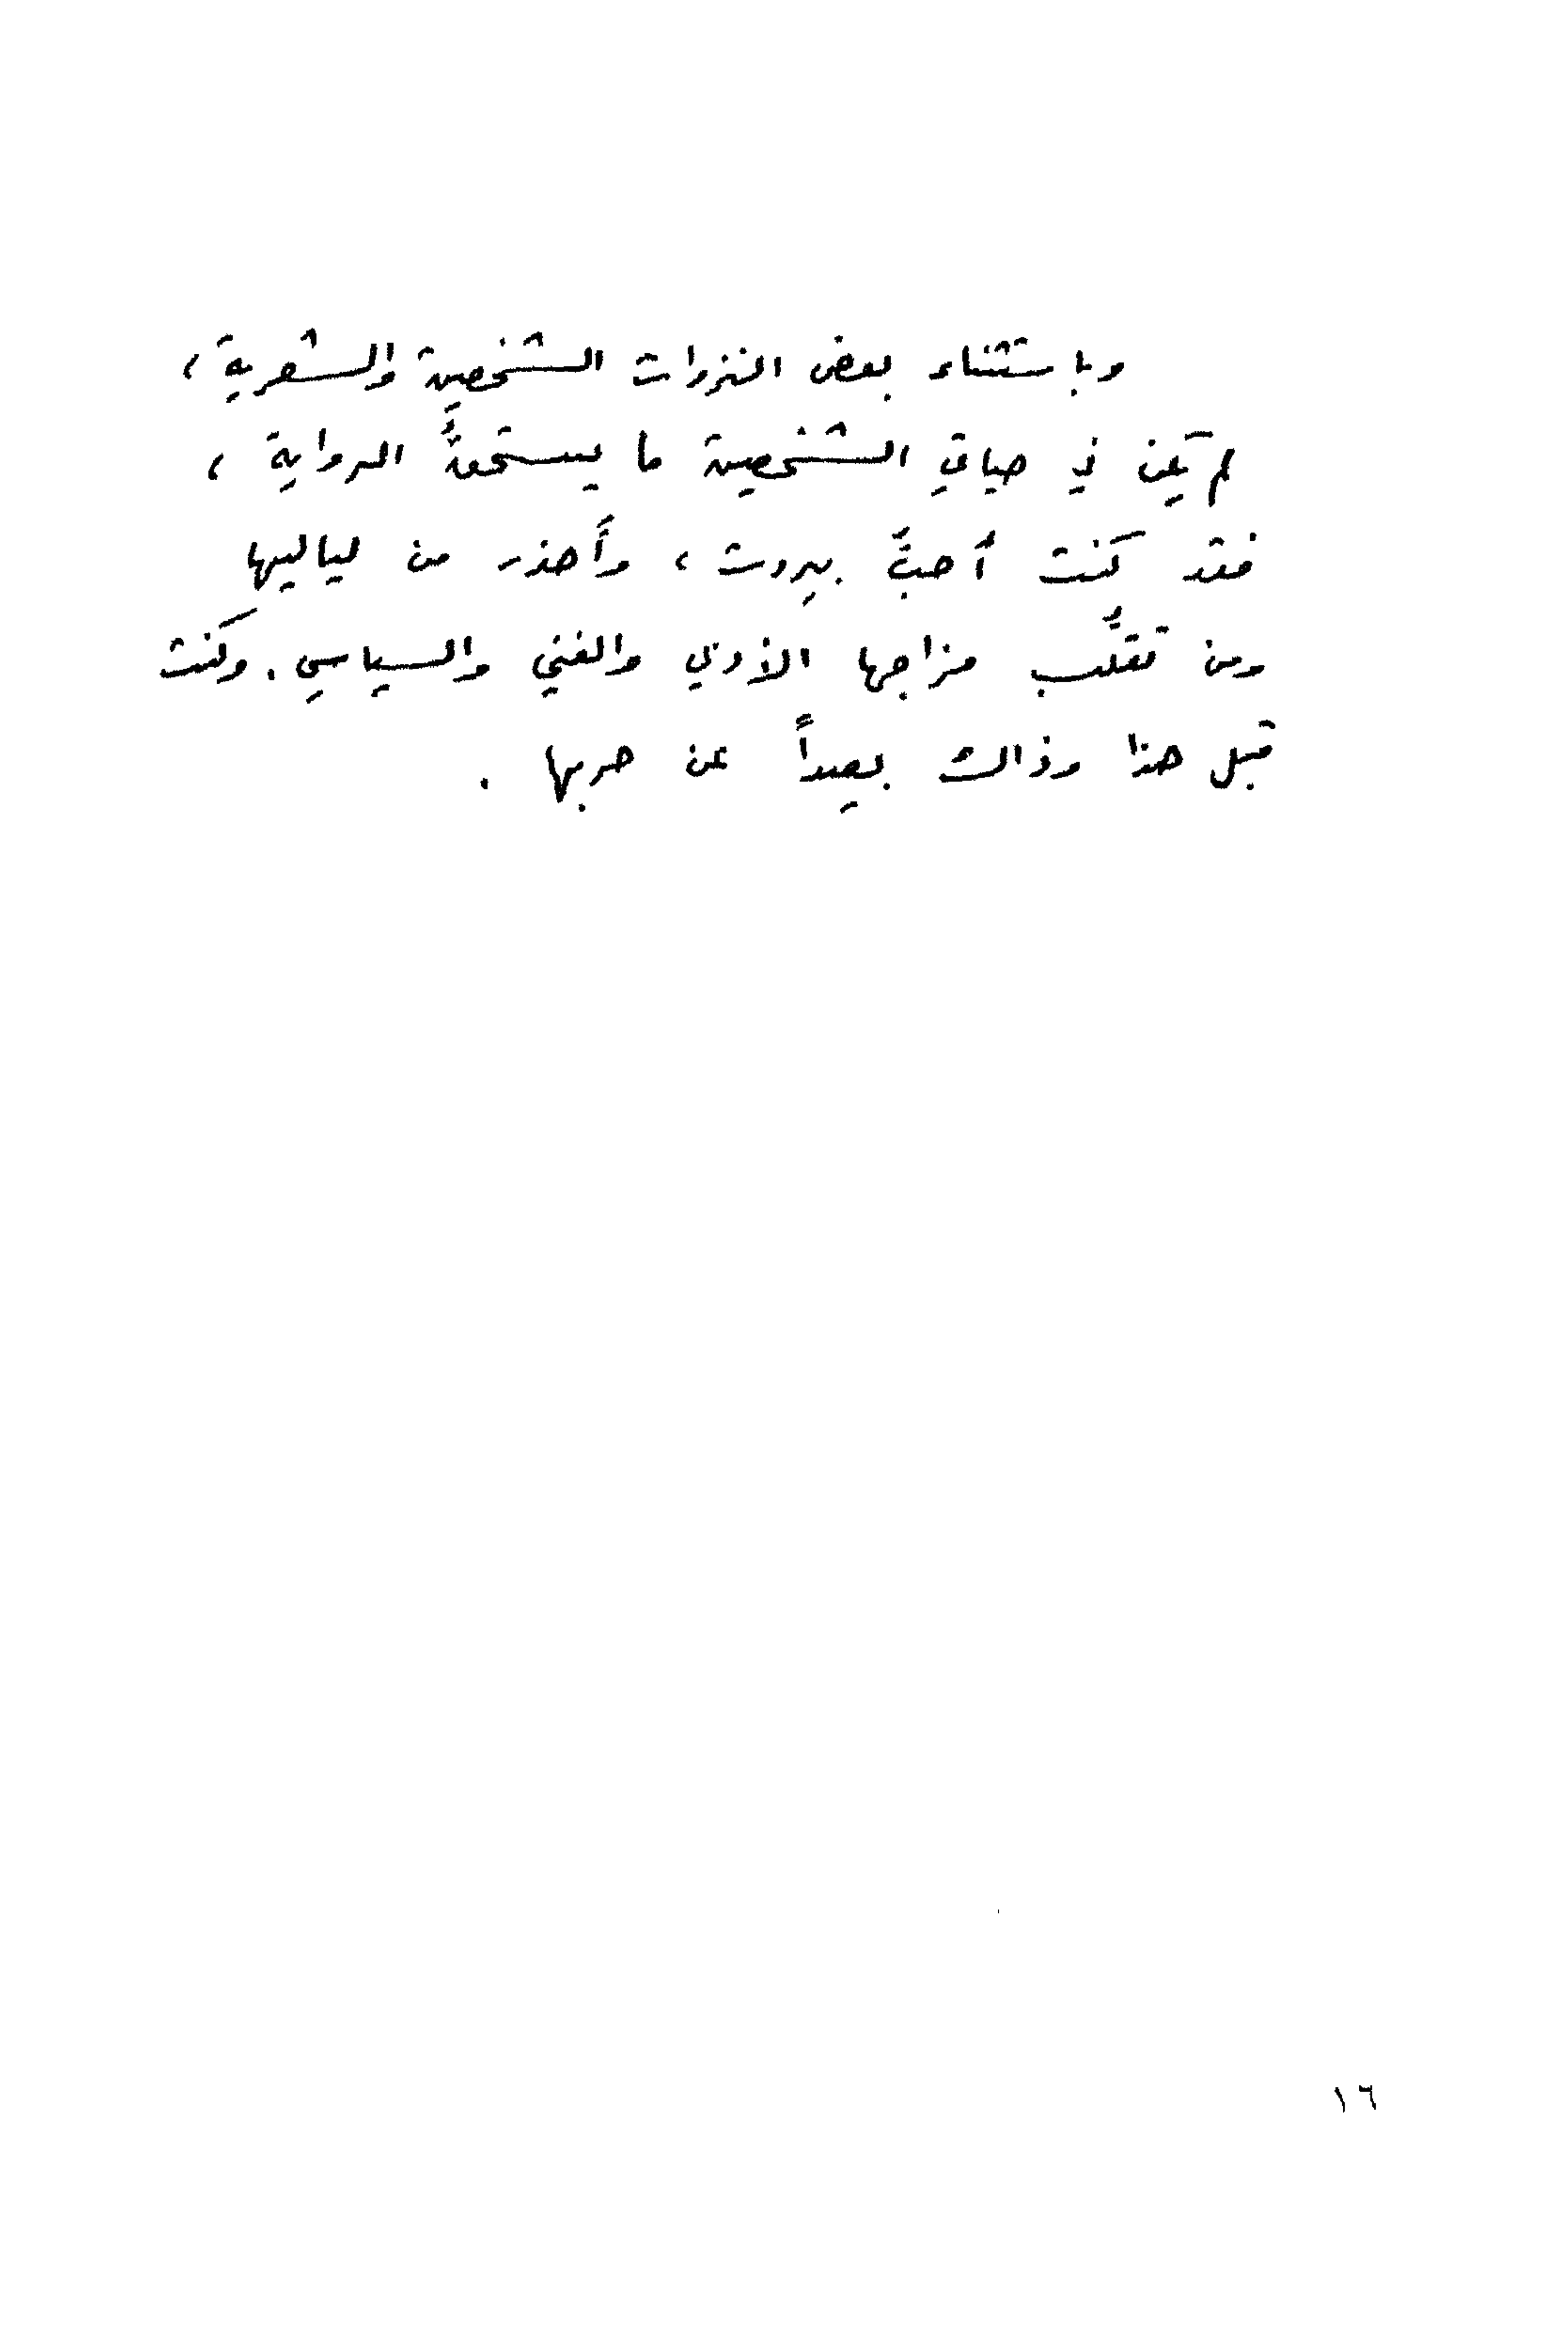 وباستثناء بعض النزوات الشخصية والشعرية ،
لم يكن في حياتي الشخصية ما يستحقُّ الرواية ،
فقد كنت أحبُّ بيروت ، وأحذر من لياليها
ومن تقلُّب مزاجها الأدبي والفني والسياسي . وكنت
قبل هذا وذاك بعيداً عن حربها .
١٦